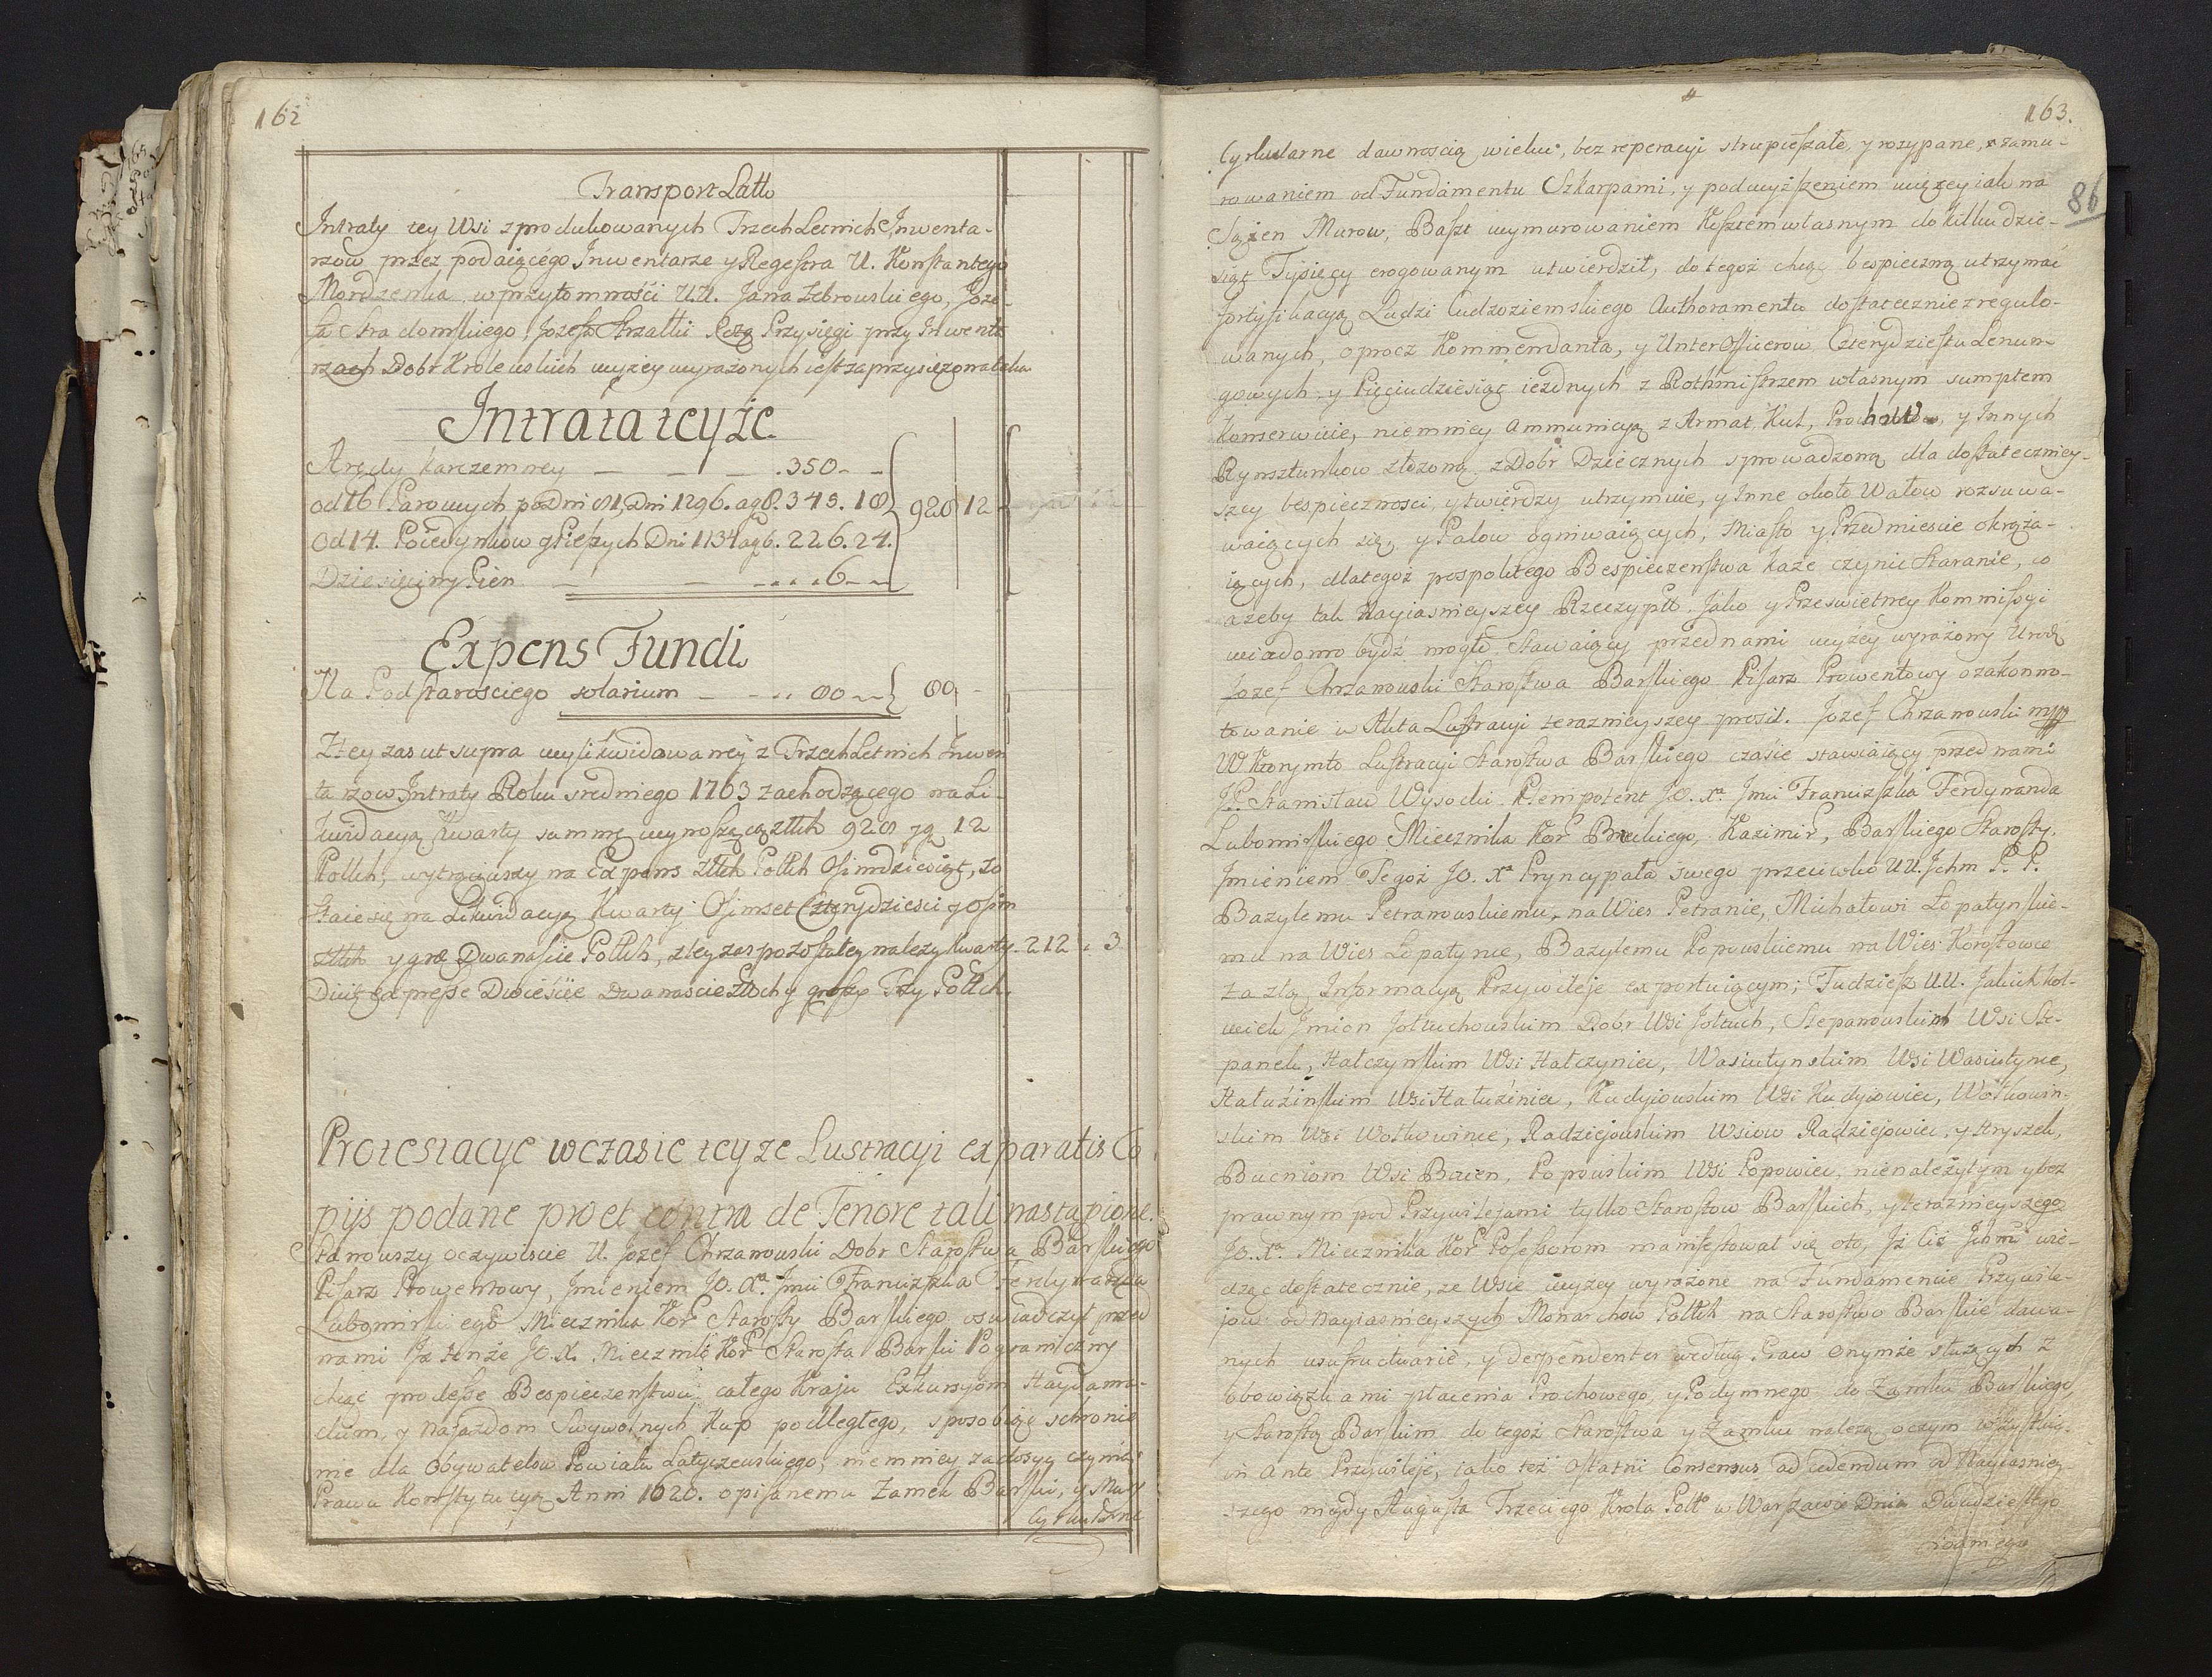 162
Transport Latt.
Intraty tey Wsi z produkowanych Trzech Letnich Inwenta-
rzow przez podaiącego Inwentarze y Regestra U. Konstantego
w przytomności UU. Jana Zebrowskiego, Joze-
fa Stradomskiego, Jozefa Strzałki Rotą Przysięgi przy Inwenta
rzach Dobr Krolewskich wyzey wyrażonych iest zaprzysiężona taka
Intrata teyże
Arędy karczemney — — — . 350 - -
od 16 Parowych po Dni 81, Dni 1296. a g 8. 345. 18
Od 14. Poiedynkow y Pieszych Dni 1134 a g 6. 226. 24.
Dziesięciny Pień — — - . . . 6 - -
928 12
Expens Fundi
Na Podstarosciego solarium — - . . 80 - 80 -
Z tey zas ut supra wylikwidowaney z Trzech Letnich Inwen
tarzow Intraty Roku sredniego 1763 zachodzącego na Li-
kwidacyą Kwarty summę wynoszącą złłch 928 y g 12
Polłch, wytrąciwszy na Expens złłch Polłch Osimdziesiąt, zo
staie się na Likwidacyą Kwarty Osimset Czterydziesci y osim
złłch y gro Dwanascie Polłch, z tey zas pozostałey nalezy Kwarty. 212 . 3
Dico expresse Dwieście Dwanascie Złłoch y groszy Trzy Polłch.
Protestacye w czasie teyze Lustracyi ex paratis Co
pijs podane pro et contra de Tenore tali nastąpione.
Stanowszy oczywiscie U. Jozef Chrzanowski Dobr Starostwa Barskiego
Pisarz Prowentowy, Jmieniem JO. Xa. Jmci Franciszka Ferdynanda
Lubomirskiego Miecznika Kor Starosty Barskiego oswiadczył przed
nami Iz tenże JO. X. Miecznik Kor Starosta Barski Pograniczny
chcąc prodesse Bespieczenstwu całego Kraju Exkursyom Haydama-
ckim, y najazdom Swywolnych Kup podległego, sposobiąc schronie
nie dla Obywatelow Powiatu Latyczewskiego, niemniey zadosyc czyniąc
Prawu Konstytucyą Anni 1620. opisanemu Zamek Barski, y Mury
Cyrkularne
163.
86
Cyrkularne dawnoscią wieku, bez reperacyi strupieszałe, y rozypane, zamu-
rowaniem od Fundamentu Szkarpami, y podwyższeniem więzey iak na
Sązen Murow, Baszt wymurowaniem Kosztem własnym do kilku dzie-
siąt Tysięcy erogowanym utwierdził, do tegoż chcąc bespieczną utrzymać
fortyfikacyą Ludzi Cudzoziemskiego Authoramentu dostatecznie zregulo-
wanych, oprocz Kommendanta, y Unter Officerow Czterydziestu Lenun
gowych, y Pięciudziesiąt iezdnych z Rothmistrzem własnym sumptem
Konserwuie, niemniey ammunicyą z Armat, Kul, Prochow, y Innych
Rynsztunkow złozoną, z Dobr Dziecznych sprowadzoną dla dostateczniey-
szey bespiecznosci, y twierdzy utrzymuie, y Inne około Wałow rozsuwa-
waiących się, y Palow ogniwaiących, Miasto y Przedmiescie okrąża-
iących, dlategoż pospolitego Bespieczenstwa każe czynić staranie, co
azeby tak Nayiasnieyszey Rzeczyptt. Jako y Przeswietney Kommissyi
wiadomo bydź mogło stawaiący przed nami wyżey wyrażony Urodz
Jozef Chrzanowski Starostwa Barskiego Pisarz Prowentowy o zakonno-
towanie w Akta Lustracyi teraznieyszey prosił. Jozef Chrzanowski mpp
W Ktorymto Lustracyi Starostwa Barskiego czasie stawiaiący przed nami
JP. Stanisław Wysocki Plenipotent JO. Xa Jmci Franciszka Ferdynanda
Lubomirskiego Miecznika Kor Kazimir, Barskiego Starosty.
Jmieniem Tegoż JO. Xa Pryncypała swego przeciwko UU. Jchm P. P.
Bazylemu Petranowskiemu, na Wies Petranie, Michałowi Łopatynskie-
mu na Wies Lopatynce, Bazylemu Popowskiemu na Wies Korostowce
za złą Informacyą Przywileje exportuiącym; Tudziesz UU. Jakichkol-
wiek Jmion Jołtuchowskim Dobr Wsi Jołtuch, Stepanowskim Wsi Ste-
panek, Hałczynskim Wsi Hałczyniec, Wasiutynskim Wsi Wasiutynce,
Hałuzinskim Wsi Hałuziniec, Kudyiowskim Wsi Kudyiowiec, Wołkowin-
skim Wsi Wołkowince, Radziejowskim Wsiow Radziejowiec, y Hryszek,
Bucniom Wsi Bucen, Popowskim Wsi Popowiec, nienależytym y bez
prawnym pod Przywilejami tylko Starostow Barskich, y teraznieyszego
JO. Xa. Miecznika Kor Possessorom manifestował się oto, Iż Ciż Jchmc wie-
dząc dostatecznie, ze Wsie wyzey wyrażone na Fundamencie Przywile-
jow od Nayiasnieyszych Monarchow Polłch na Starostwo Barskie dawa-
nych usufructuarie, y dependenter według Praw onymże służących z
obowiązkami płacenia Prochowego, y Podymnego do Zamku Barskiego,
y Starostą Barskim do tegoż Starostwa y Zamku nalezą, o czym wszystkie
in ante Przywileje, iako też Ostatni Consensus ad cedendum od Nayiasniey-
szego niegdy Augusta Trzeciego Krola Polłº w Warszawie Dnia Dwudziestego
siodmego